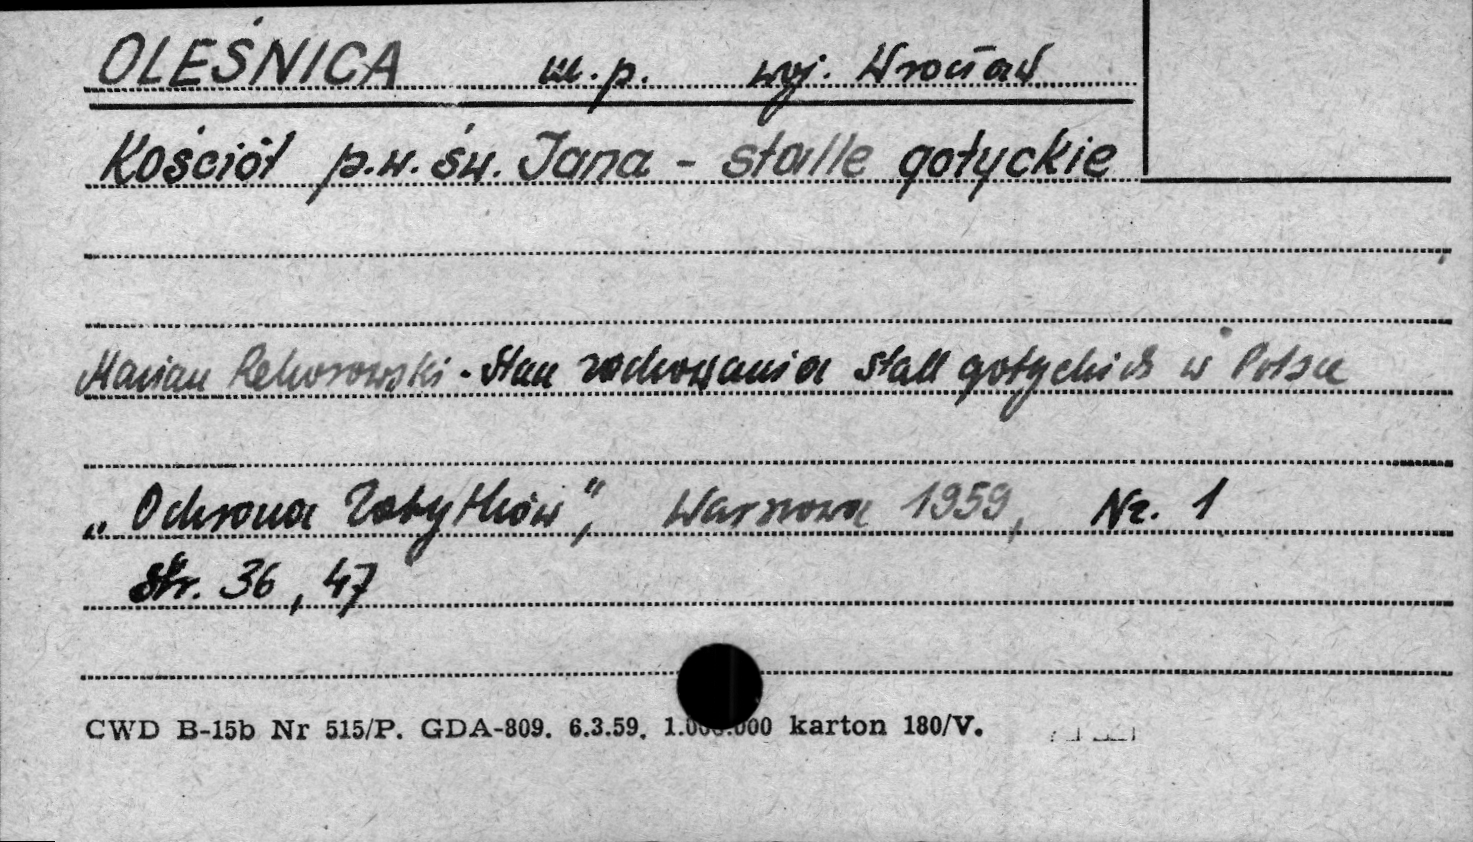 OLEŚNICA m.p. woj. Wrocław
Kościół p.w. św. Jana - stalle gotyckie
Marian Rehorowski - Stan zachowania stall gotyckich w Polsce
„Ochrona Zabytków”, Warszawa 1959, Nr. 1
Str. 36, 47
CWD B-15b Nr 515/P. GDA-809. 6.3.59. 1.000.000 karton 180/V.